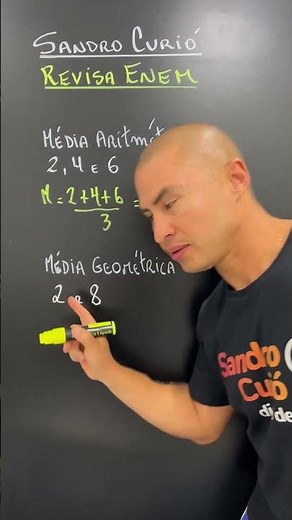 SANDRO CURIÓ
REVISA ENEM
MÉDIA
2, 4 E 6
M = 2+4+6 =
3
MÉDIA GEOMÉTRICA
2 e 8
Sandro
Curió